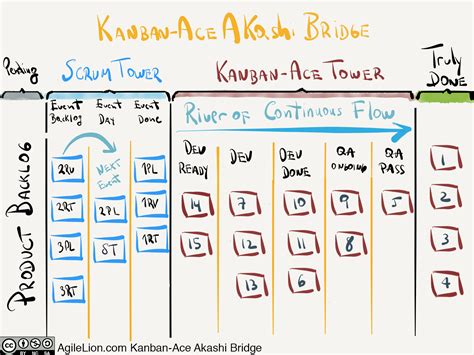 KANBAN-ACE AKASHI BRIDGE
Pending
SCRUM TOWER
KANBAN-ACE TOWER
TRULY DONE
PRODUCT BACKLOG
EVENT BACKLOG
EVENT DAY
EVENT DONE
RIVER OF CONTINUOUS FLOW
DEV READY
DEV
DEV DONE
QA ONGOING
QA PASS
2RV
NEXT EVENT
1PL
2RT
2PL
1RV
3PL
ST
1RT
3RT
14
7
10
9
5
15
12
11
8
13
6
1
2
3
4
CC BY NC SA
AgileLion.com Kanban-Ace Akashi Bridge